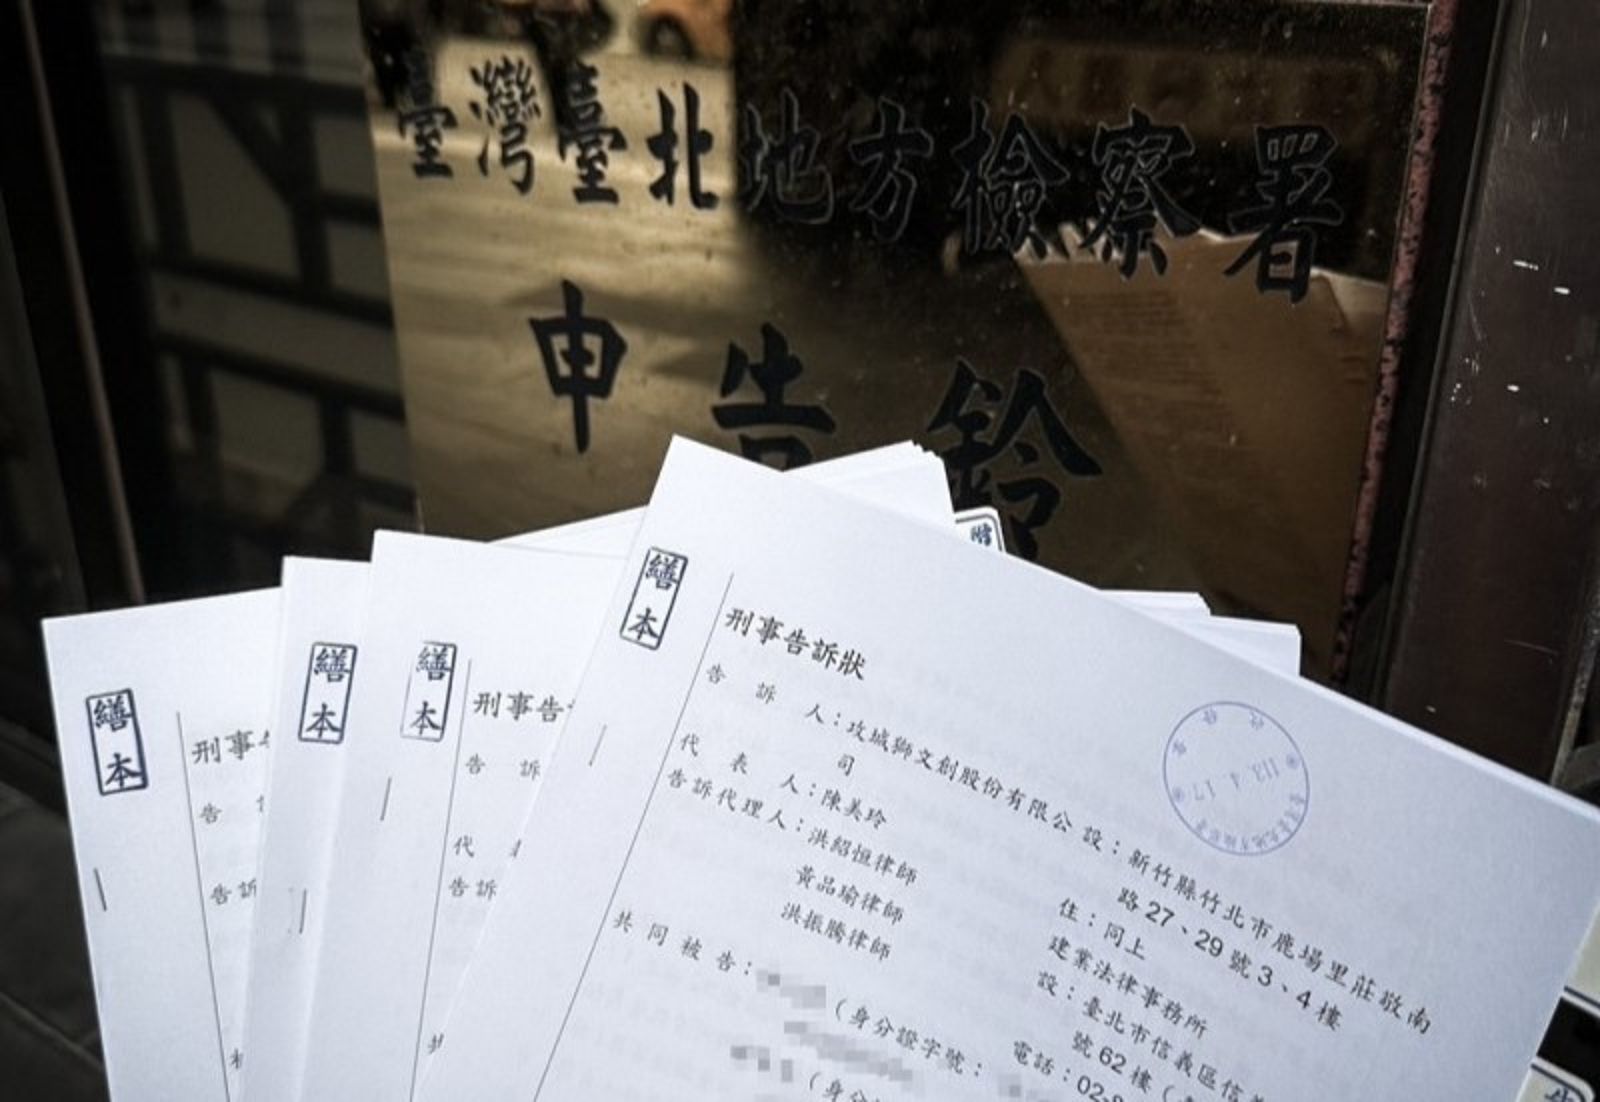 臺灣臺北地方檢察署
申告鈴
繕本
刑事告訴狀
告訴人：攻城獅文創股份有限公司
設：新竹縣竹北市鹿場里莊敬南路27、29號3、4樓
代表人：陳美玲
住：同上
告訴代理人：洪紹恒律師
黃品瑜律師
洪振騰律師
建業法律事務所
設：臺北市信義區信義
號62樓（
電話：02-8
共同被告：
（身分證字號：
（身分
113.4.17
繕本
刑事告
告訴
代
告訴
繕本
繕本
刑事
告
告訴